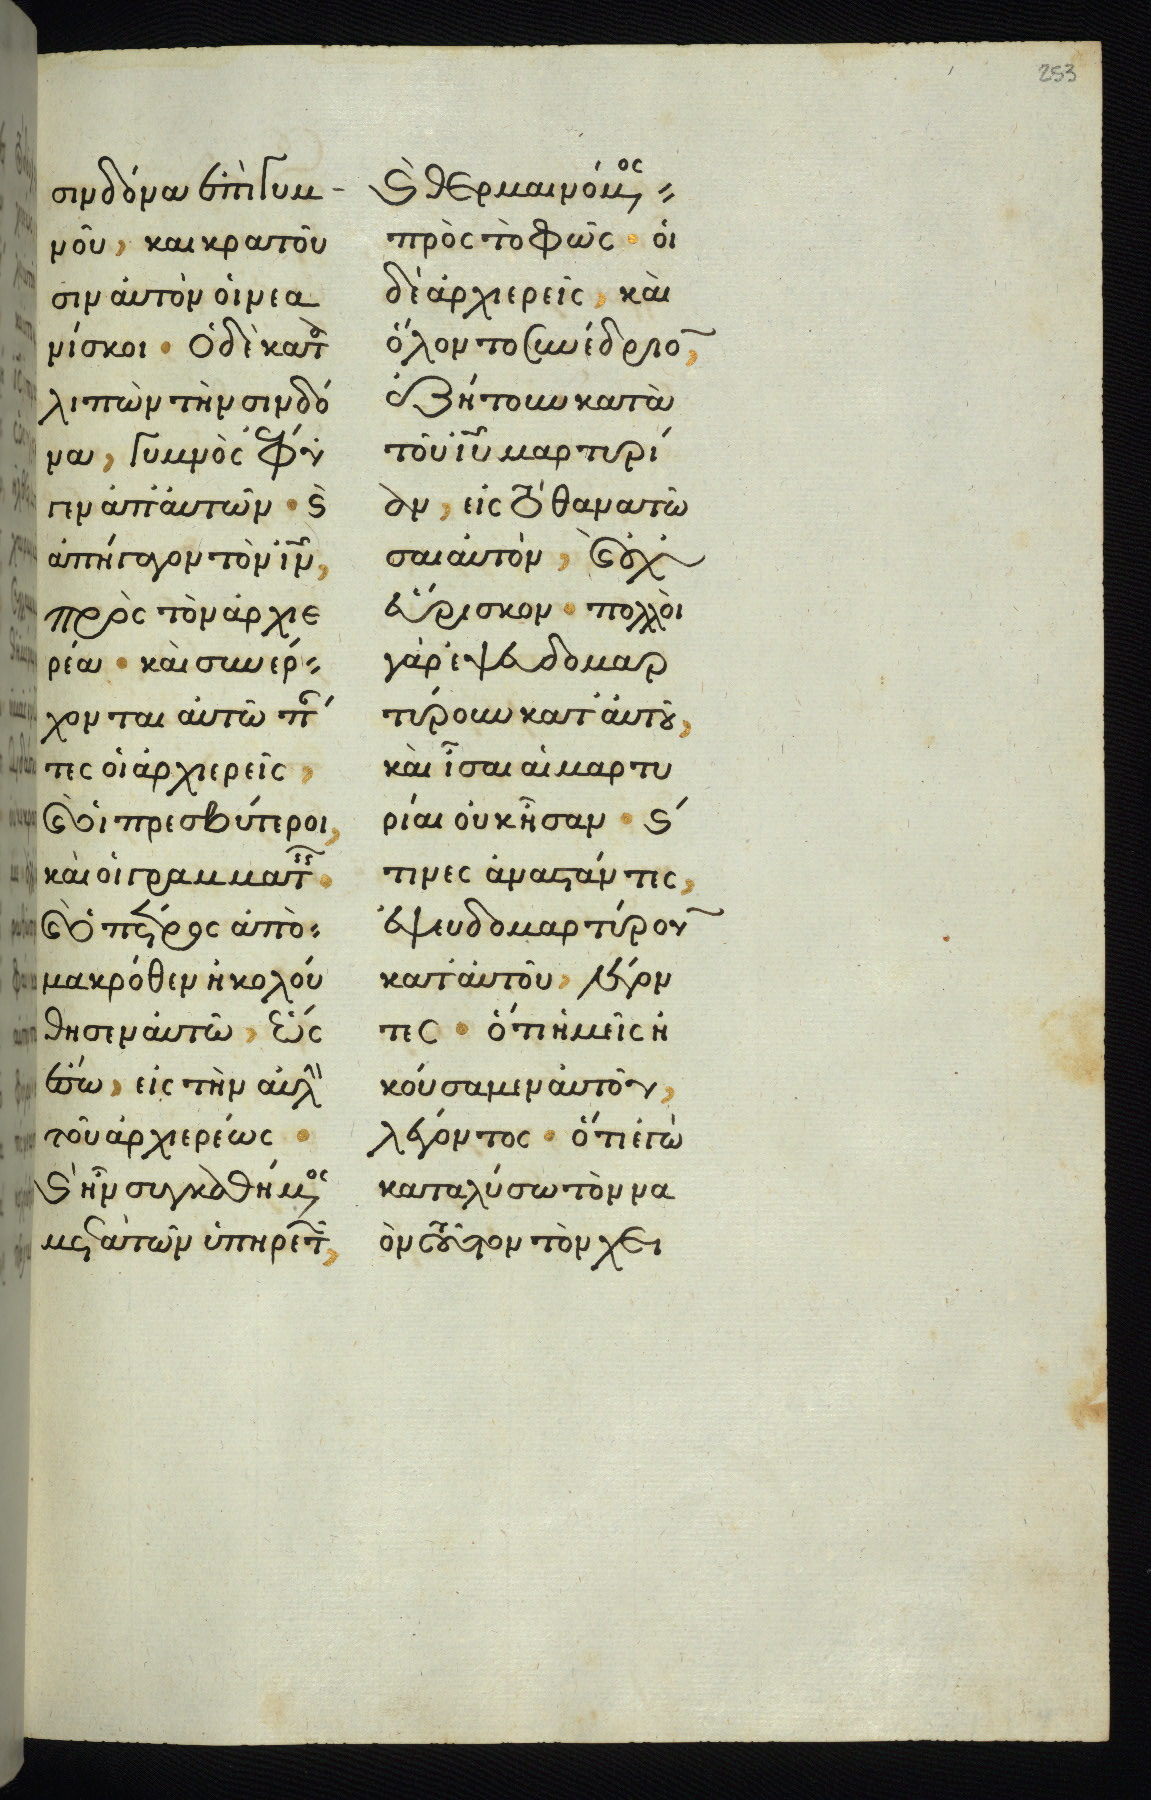 253
σινδόνα ἐπὶ γυμ-
νοῦ, και κρατοῦ
σιν ἀυτὸν ὁι νεα
νίσκοι · Ὁ δὲ κατ
λιπὼν τὴν σινδό
να, γυμνὸς ἔφυ
γεν ἀπ' ἀυτῶν · ϛ̀
ἀπήγαγον τὸν ἰν̅,
πρὸς τὸν ἀρχιε
ρέα · κὰι συνέρ〃
χονται ἀυτῶ πά
τες ὁι ἀρχιερεῖς,
ϗ ὁι πρεσβύτεροι,
κὰι ὁι γραμματ ·
ϗ ὁ πέτρος ἀπὸ〃
μακρόθεν ἠκολού
θησεν ἀυτῶ, ἕως
ἔσω, εἰς τὴν ἀυλ
τοῦ ἀρχιερέως ·
ϛ̀ ἦν συγκαθήμος
μετ ἀτῶν ὑπηρετ,
ϛ̀ θερμαινόμος〃
πρὸς τὸ φῶς · ὁι
δὲ ἀρχιερεῖς, κὰι
ὅλον το συνέδριο,
ἐζήτουν κατὰ
τοῦ ἰυ̅ μαρτυρί
αν, εἰς τὸ θανατῶ
σαι ἀυτὸν, ϗ ὀυχ
ἕυρισκον · πολλὸι
γάρ ἐψευδομαρ
τύρουν κατ' ἀυτοῦ,
κὰι ἶσαι ἁι μαρτυ
ρίαι ὀυκ ἦσαν · ϛ́
τινες ἀναϛάντες,
ἐψευδομαρτύρουν
κατ' ἀυτοῦ, λέγον
τες · ὅτι ἡμεῖς ἠ
κούσαμεν ἀυτοῦ,
λέγοντος · ὅτι ἐγὼ
καταλύσω τὸν να
ὸν τοῦτον τὸν χει